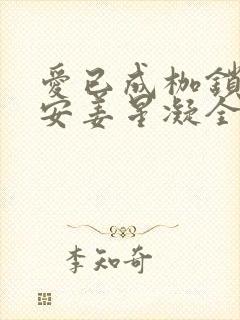 愛已成枷鎖
安姜星凝全
李知奇